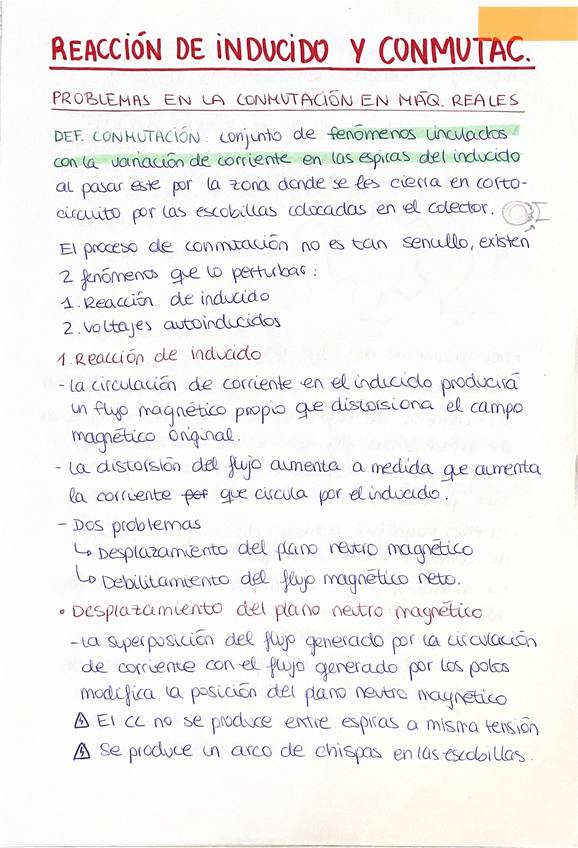 REACCIÓN DE INDUCIDO Y CONMUTAC.
PROBLEMAS EN LA CONMUTACIÓN EN MÁQ. REALES
DEF. CONMUTACIÓN: conjunto de fenómenos vinculados
con la variación de corriente en las espiras del inducido
al pasar este por la zona donde se les cierra en corto-
circuito por las escobillas colocadas en el colector.
El proceso de conmutación no es tan sencillo, existen
2 fenómenos que lo perturbar:
1. Reacción de inducido
2. Voltajes autoinducidos
1. Reacción de inducido
- La circulación de corriente en el inducido producirá
un flujo magnético propio que distorsiona el campo
magnético original.
- La distorsión del flujo aumenta a medida que aumenta
la corriente por que circula por el inducido.
- Dos problemas
↳ Desplazamiento del plano neutro magnético
↳ Debilitamiento del flujo magnético neto.
• Desplazamiento del plano neutro magnético
- La superposición del flujo generado por la circulación
de corriente con el flujo generado por los polos
modifica la posición del plano neutro magnético
⚠ El cc no se produce entre espiras a misma tensión
⚠ Se produce un arco de chispas en las escobillas.